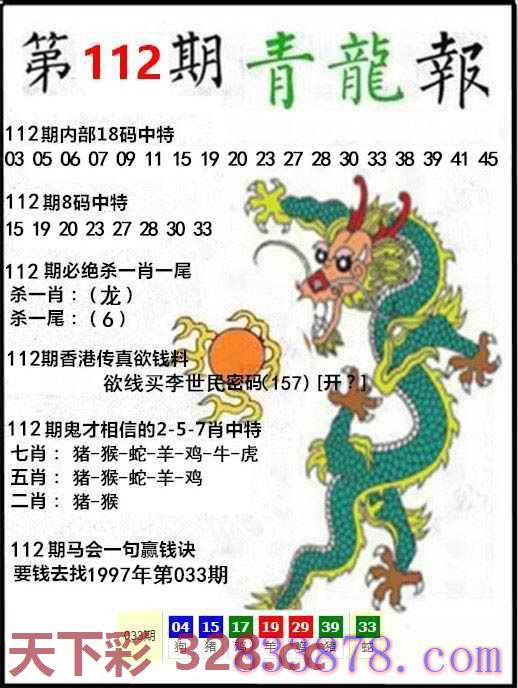 第112期青龍報
112期内部18码中特
03 05 06 07 09 11 15 19 20 23 27 28 30 33 38 39 41 45
112期8码中特
15 19 20 23 27 28 30 33
112期必绝杀一肖一尾
杀一肖：（龙）
杀一尾：（6）
112期香港传真欲钱料
欲线买李世民密码(157) [开?]
112期鬼才相信的2-5-7肖中特
七肖： 猪-猴-蛇-羊-鸡-牛-虎
五肖： 猪-猴-蛇-羊-鸡
二肖： 猪-猴
112期马会一句赢钱诀
要钱去找1997年第033期
033期 04 15 17 19 29 39 33
狗 猪 羊 猪 蛇
天下彩 328.cc
833878.com